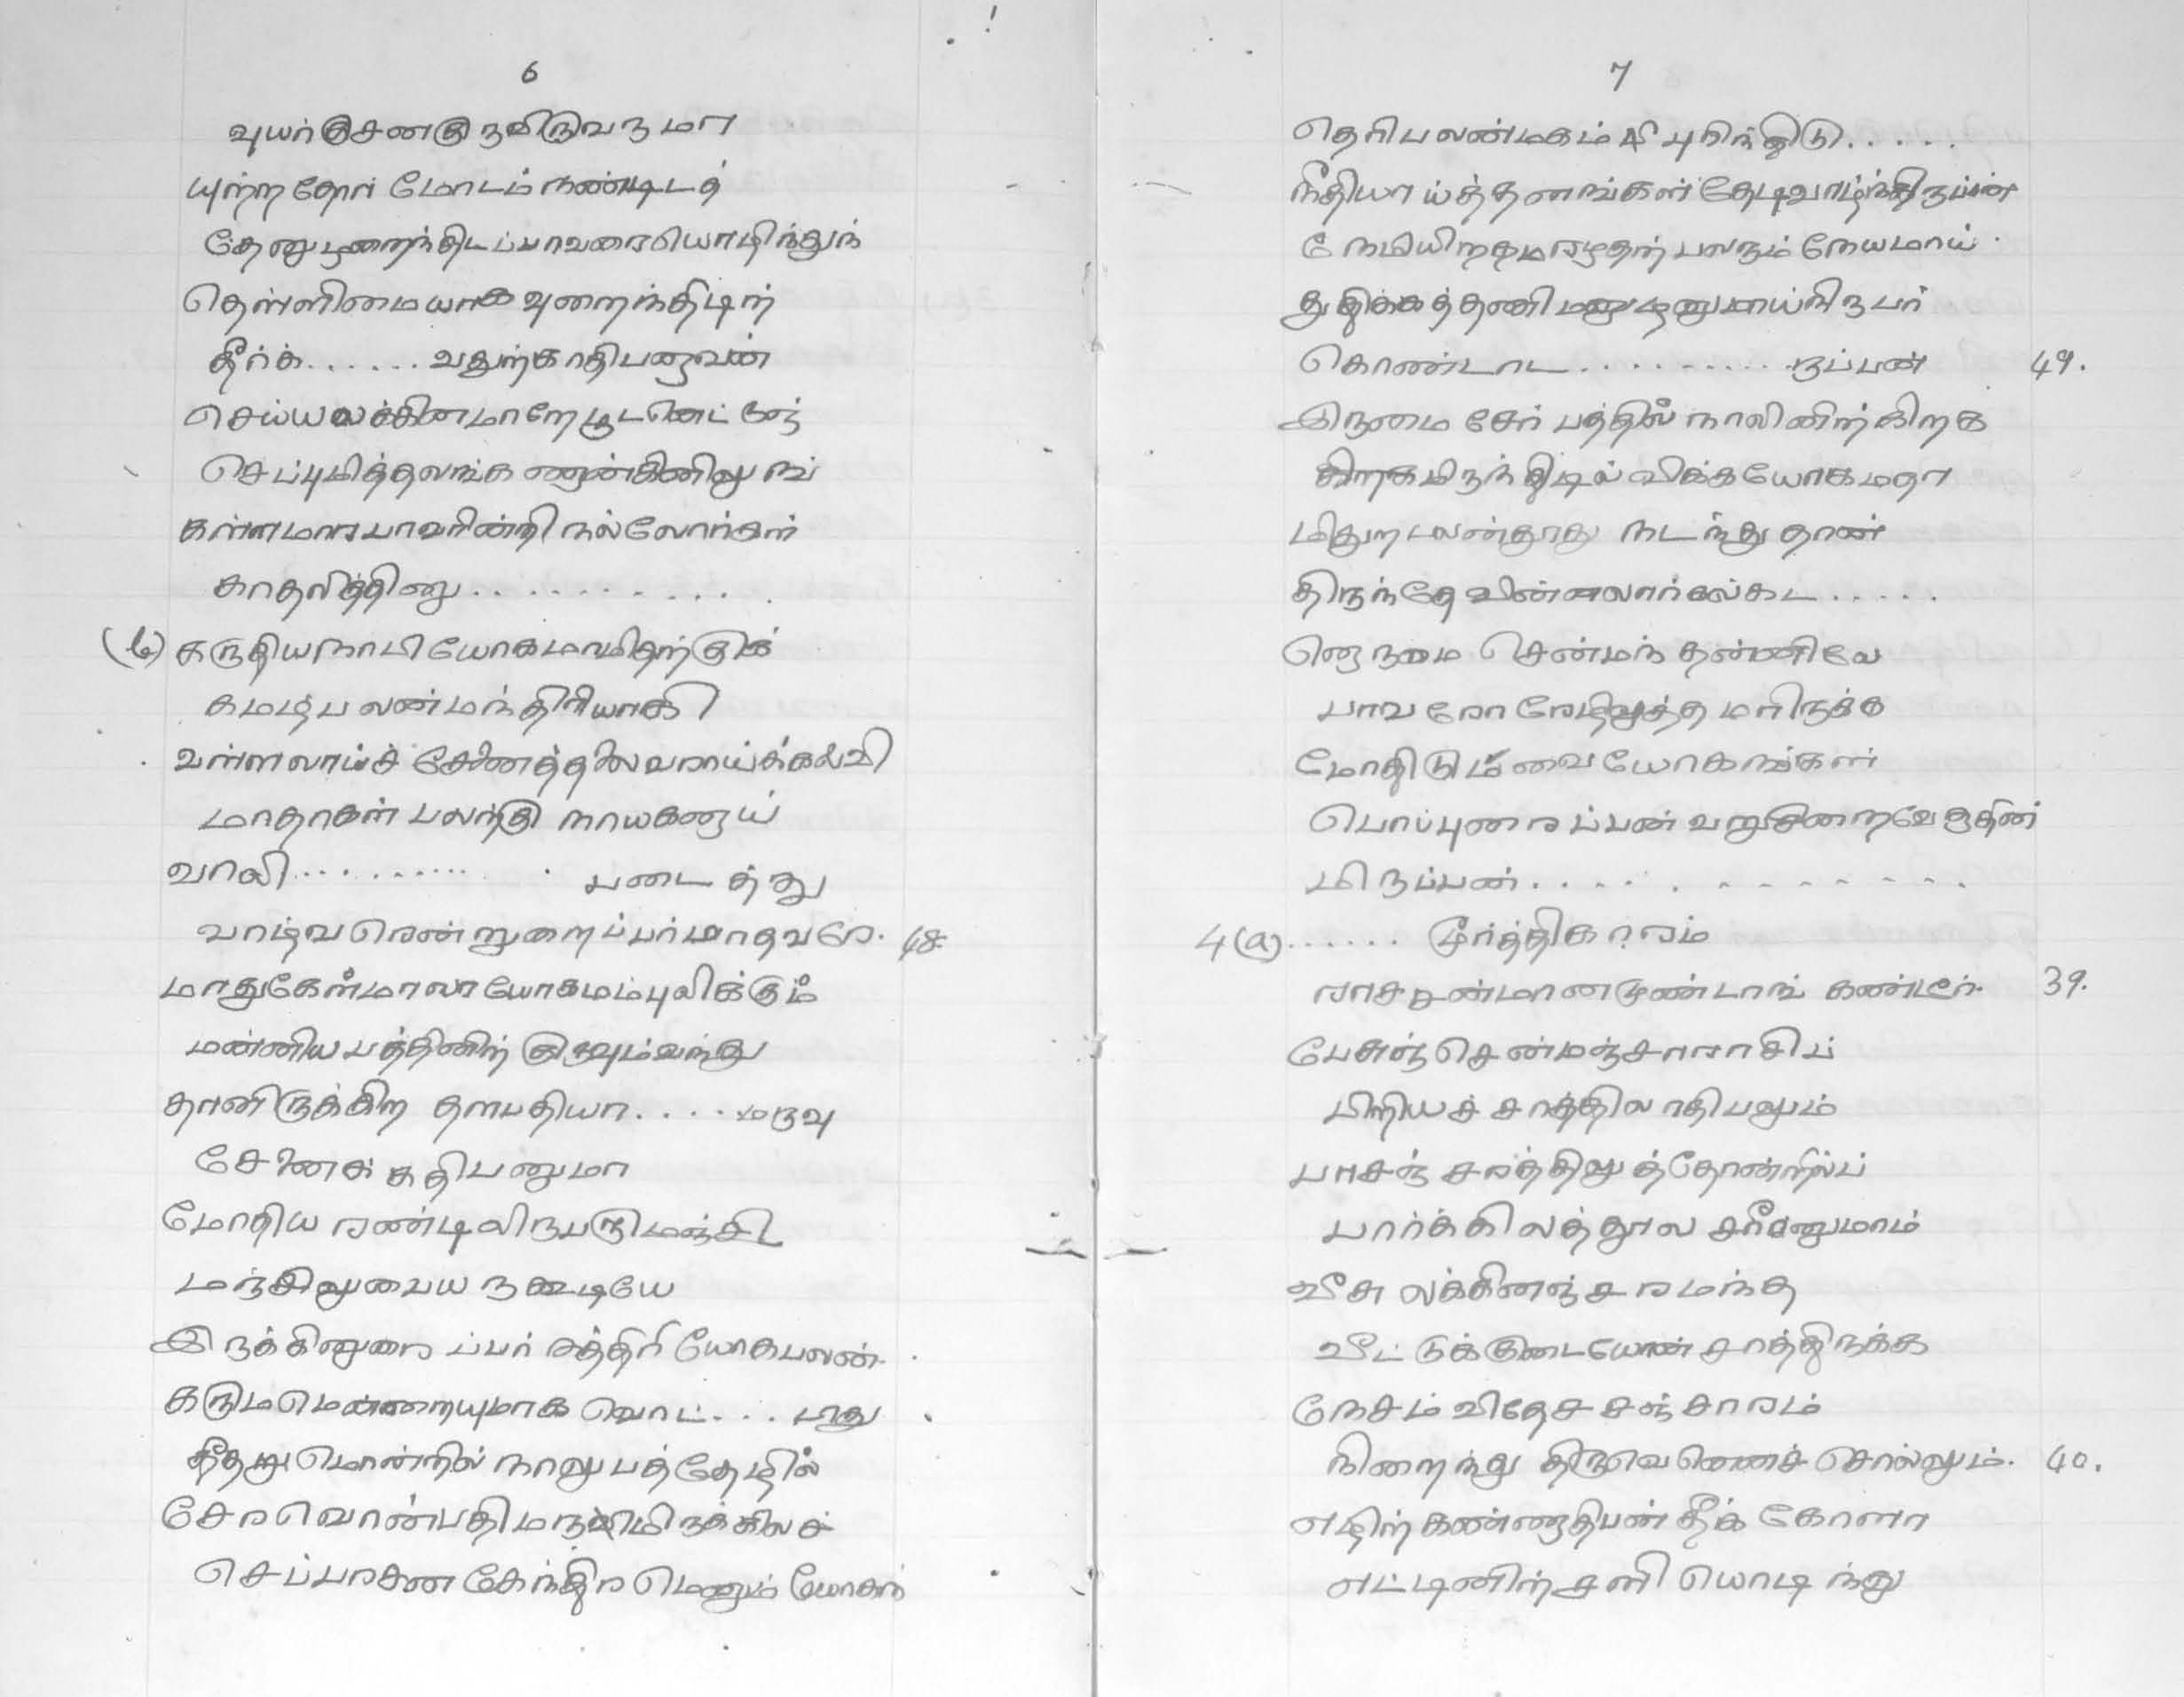 6
வுயர்குசனகுநவிடுவருமா
யுற்ற தோர் மோடம் நண்டிடத்
தேனுமுறைந்திடப்பாவரையொழிந்துந்
தெள்ளிமையாக வுறைந்திடிற்
தீர்க்க...... வதுற்காதிபனுவன்
செய்யலக்கினமாறேமூடனெட்டூனந்
செப்புமித்தலங்க ணான்கினிலுஙு்
கள்ளமாரபாவரின்றி நல்லோர்கள்
காதலித்தினு............
(b) கருதியநாபியோகமாமிதற்குக்
கமழ்பலண்மந்திரியாகி
வள்ளலாய்ச் சேனைத்தலைவராய்க்கல்வி
மாதாகள் பலந்கு நாயகனுய்
வாலி........... படைத்து
வாழ்வரென்றுறைப்பர்மாதவரே. 48.
மாதுகேள்மாலாயோகமம்புவிக்கும்
மன்னியபத்தினிற் குருவும்வந்து
தானிருக்கிற தளபதியா.... மருவு
சேனைக் கதிபனுமா
மோதிய ரண்டிலிருபரு மஞ்சி
மந்சிலுவைய ருகூடியே
இருக்கினுரைப்பர் சுத்திரி யோகபலண்.
கருமமென்றையுமாக வொட்... டாது
தீதறுமொன்றில் நாலு பத்தேழில்
சேரவொன்பதிமருவிமிருக்கிலச்
செப்பரசன கேந்திர மெனும் யோகந்
7
தெரிபலண்மகம் லி புரிந்திடு.....
நீதியாய்த்தனங்கள் தேடிவாழ்ந்திருப்பன்
நேமியிறகுமரமுதற் பலரும் நேயமாய்
துதிக்கத்தணி மனுமுனுமாய்நிருபர்
கொண்டாட..........ருப்பண் 49.
இருமை சேர் பத்தில் நாலினிற்கிறக
கிறகமிருந்திடில் விக்கயோகமதா
மிதுற பலண்தாது நடந்து தாண்
திருந்தே வின்னலார்கல்கட.....
னெருமை சென்மந் தன்னிலே
பாவரோரேழிலுத்தமரிருக்க
மோதிடும்வை யோகஙு்கள்
பொப்புரைப்பண் வறுசிறைவேளதின்
மிருப்பண்............
4(a)...... மூர்த்திகாரம்
ராசசன்மானமுண்டாங் கண்டீர். 39.
பேசுந்சென்மந்சாராசிப்
பிரியச் சரத்திலாதிபனும்
பாசந் சரத்திலுத்தோன்றில்ப்
பார்க்கிலத்தூல சரீரனுமாம்
வீசு லக்கினந்சரமந்த
வீட்டுக்குடையோன் சரத்திருக்க
நேசம் விதேச சஞ்சாரம்
நிறைந்து திருவெனச் சொல்லும். 40.
எழிற்கண்ணாதிபண் தீக் கோளா
எட்டினிற்சனி யொடிந்து